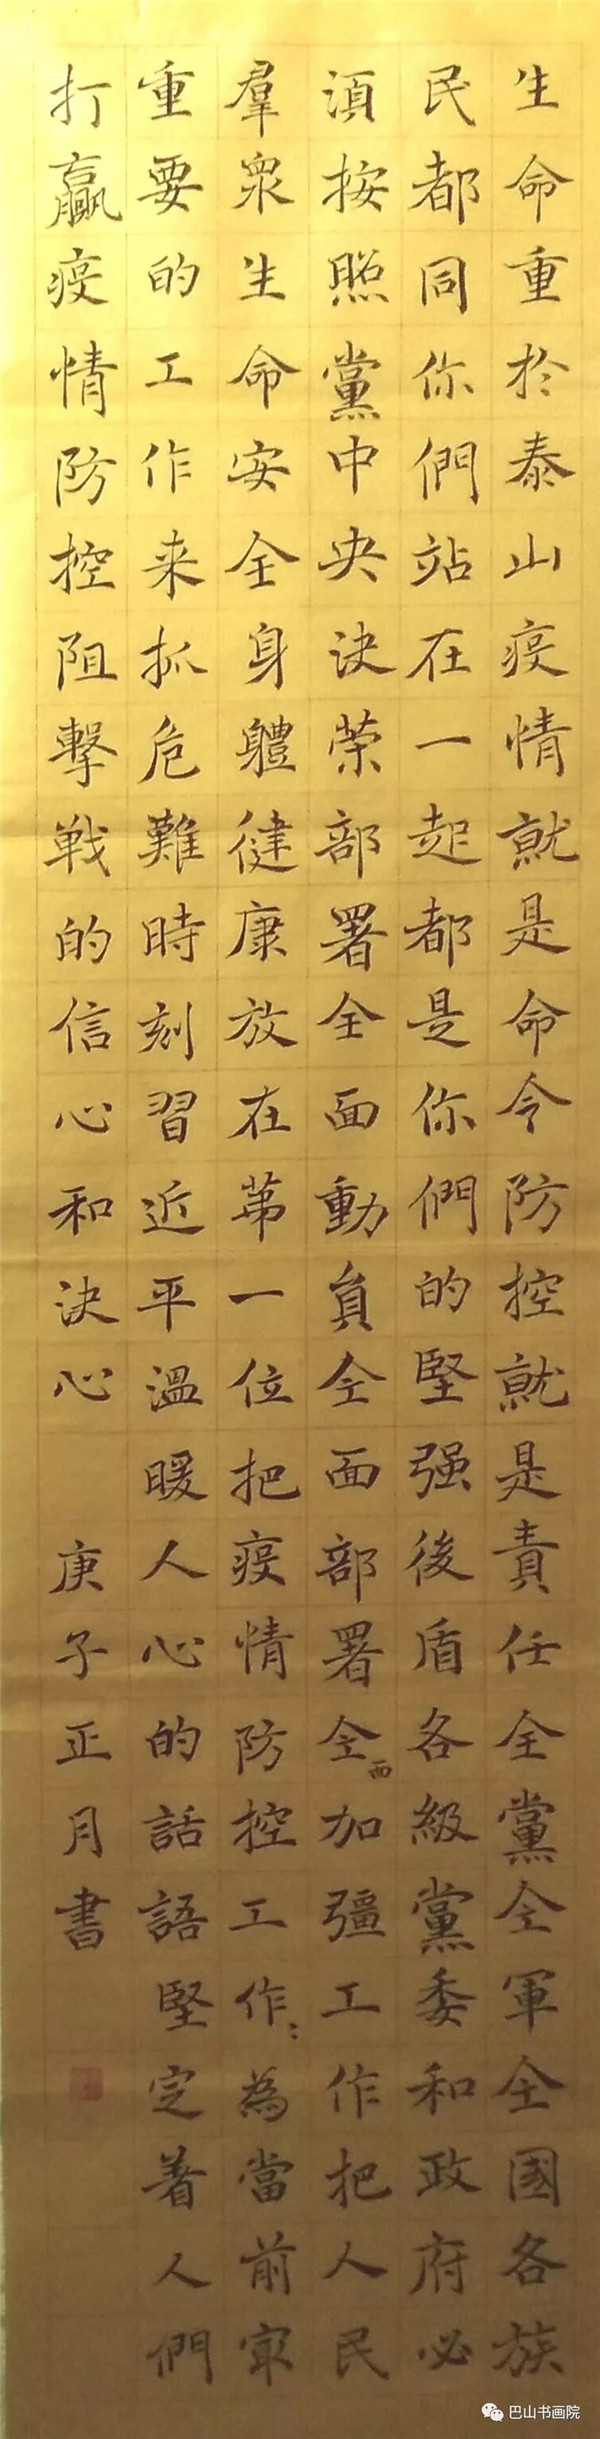 生命重於泰山疫情就是命令防控就是責任全黨全軍全國各族
民都同你們站在一起都是你們的堅强後盾各級黨委和政府必
須按照黨中央决策部署全面動員全面部署全面加彊工作把人民
羣眾生命安全身體健康放在苐一位把疫情防控工作:為當前冣
重要的工作来抓危難時刻習近平溫暖人心的話語堅定着人們
打贏疫情防控阻擊戰的信心和決心 庚子正月書
巴山书画院